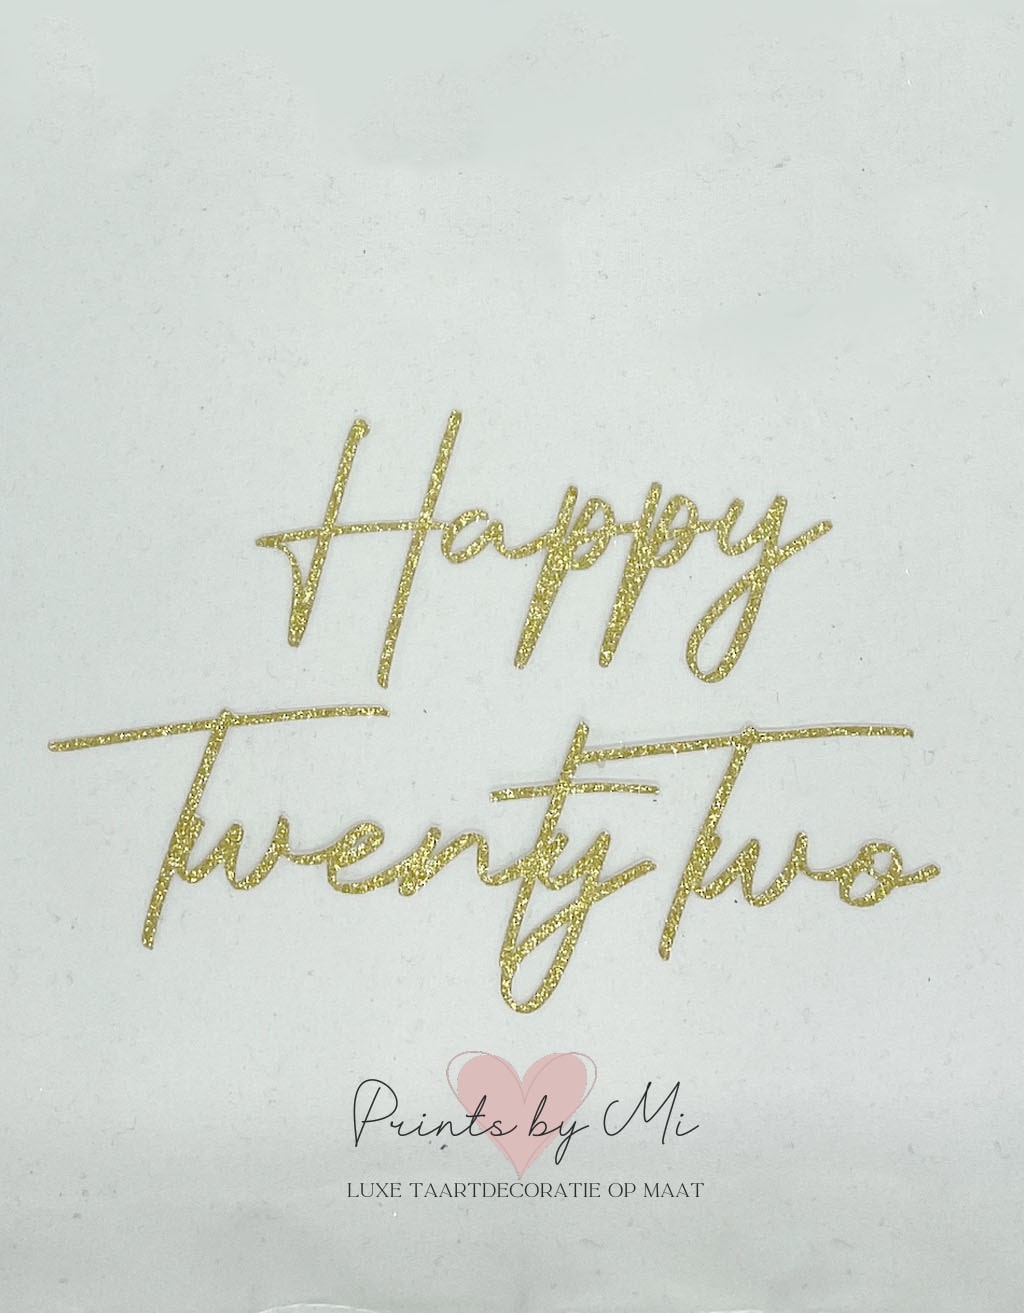 Happy
Twenty Two
Prints by Mi
LUXE TAARTDECORATIE OP MAAT